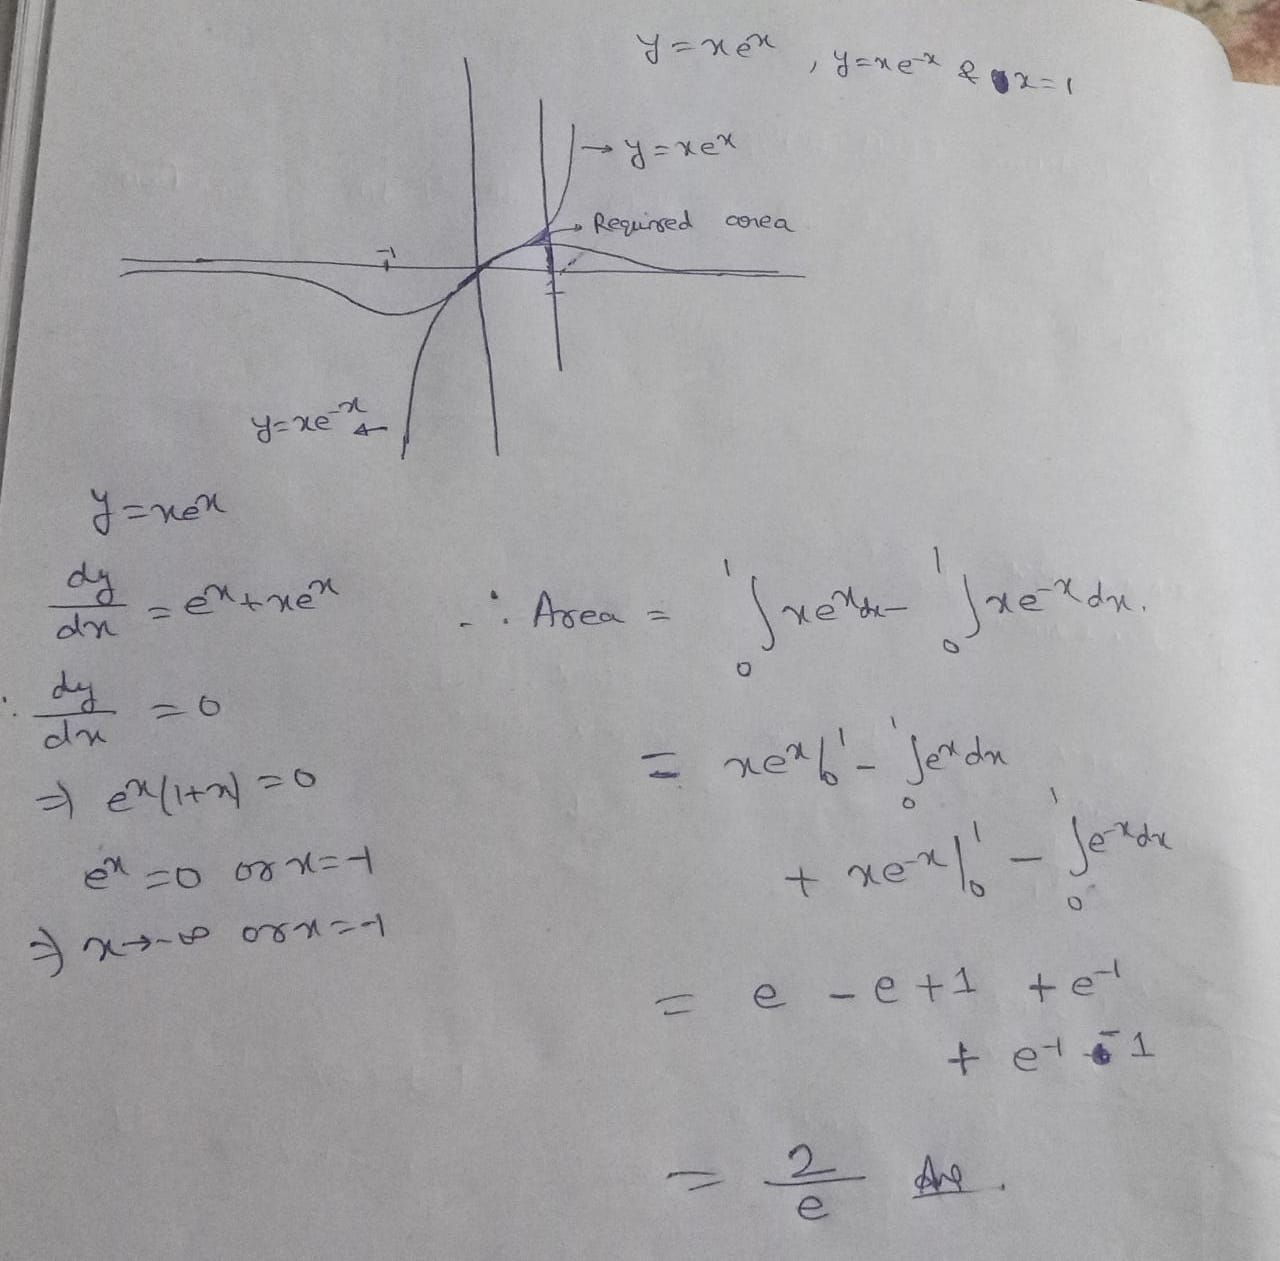 y = xeˣ , y = xe⁻ˣ & x = 1
→ y = xeˣ
→ Required area
-1
y = xe⁻ˣ ←
y = xeˣ
dy/dx = eˣ + xeˣ
dy/dx = 0
⇒ eˣ(1+x) = 0
eˣ = 0 or x = -1
⇒ x → -∞ or x = -1
∴ Area = ₀∫¹ xeˣ dx - ₀∫¹ xe⁻ˣ dx.
= xeˣ|₀¹ - ₀∫¹ eˣ dx
+ xe⁻ˣ|₀¹ - ₀∫¹ e⁻ˣ dx
= e - e + 1 + e⁻¹
+ e⁻¹ - 1
= 2/e Ans.